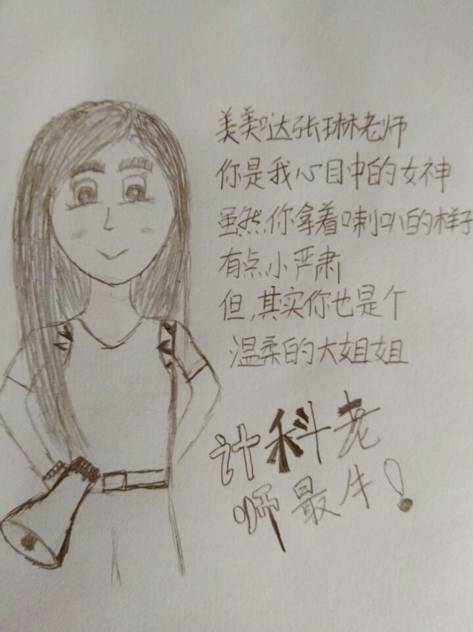 美美哒张琳老师
你是我心目中的女神
虽然,你拿着喇叭的样子
有点小严肃
但,其实你也是个
温柔的大姐姐
计科老
师最牛!